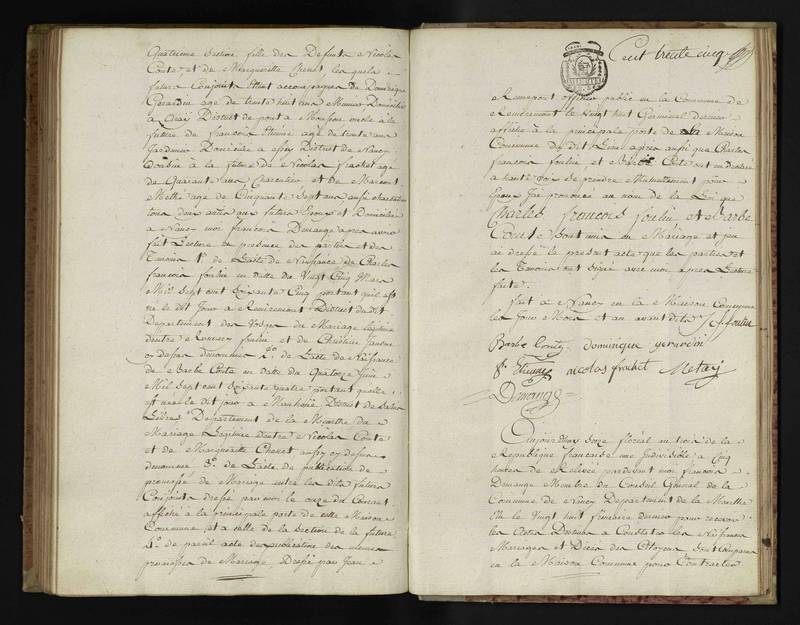 quatrieme Section fille des Defunts Nicolas
Conte et de Margueritte Chenet les quels
futurs Conjoints Etant accompagnés de Dominique
Gerardin agé de trente huit ans Domicilié
à District de pont a Mousson oncle à la
future de francois Etienne agé de trente ans
Jardinier Domicilié a essey District de Nancy
Cousin à la future de Nicolas frachet agé
de Quarante ans Charpentier et de
agé de Cinquante Sept ans aussi charpentier
tous deux amis aux futurs Epoux et Domiciliés
a Nancy moi francois Demange apres avoir
fait Lecture en presence des parties et des
Temoins 1º. de L'acte de Naissance de Charles
francois foulin en datte du Vingt Cinq Mars
Mil Sept cent Soixante Cinq portant qu'il est
né le dit Jour à Remiremont District du dit
Departement des Vosges du Mariage légitime
d'entre foulin et de Christine
cy dessus denommés 2º. de L'acte de Naissance
de Barbe Conte en datte du Quatorze
Mil Sept cent Soixante quatre portant quelle
est née le dit jour à District de Salins
Libres Departement de la Meurthe du
Mariage Légitime d'entre Nicolas Conte
et de Margueritte Chenet aussy cy dessus
denommés 3º. de L'acte de publication de
promesse de Mariage entre les dits futurs
Conjoints dressé par moi le onze du Courant
affiché à la principale porte de cette Maison
Commune et a celle de la Section de la future
4º. de pareil acte de publication des memes
promesses de Mariage Dressé par Jean
Cent trente cinq
officier public en la Commune de
Remiremont le Vingt huit Germinal dernier
affiché à la principale porte de la Maison
Commune du dit Lieu apres aussi que Charles
francois foulin et Barbe Conte ont declaré
a haute voix se prendre Mutuellement pour
Epoux J'ai prononcé au nom de la Loi que
Charles francois foulin et Barbe
Conte Sont unis en Mariage et j'en
ai dressé le present acte que les parties et
les Temoins ont signé avec moi apres Lecture
faite.
fait à Nancy en la Maison Commune
les Jour Mois et an avant dits foulin
Barbe Conte dominique gerardin
f. Etienne nicolas frachet Metay
Demange
Aujourdhuy onze floreal an trois de la
Republique francaise une Indivisible à Cinq
heures de Relevée pardevant moi francois
Demange Membre du Conseil General de la
Commune de Nancy Departement de la Meurthe
Elu le Vingt huit frimaire dernier pour recevoir
les Actes Destinés a Constater les Naissances
Mariages et Deces des Citoyens Sont Comparus
en la Maison Commune pour Contracter